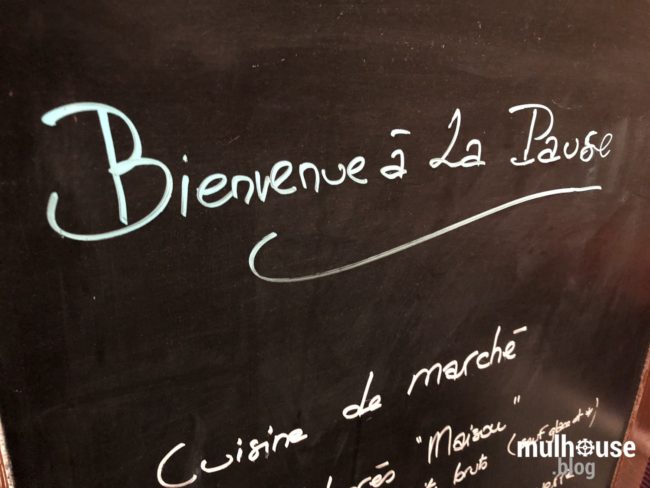 Bienvenue à La Pause
Cuisine de marché
"Maison"
bruts
mulhouse
.blog